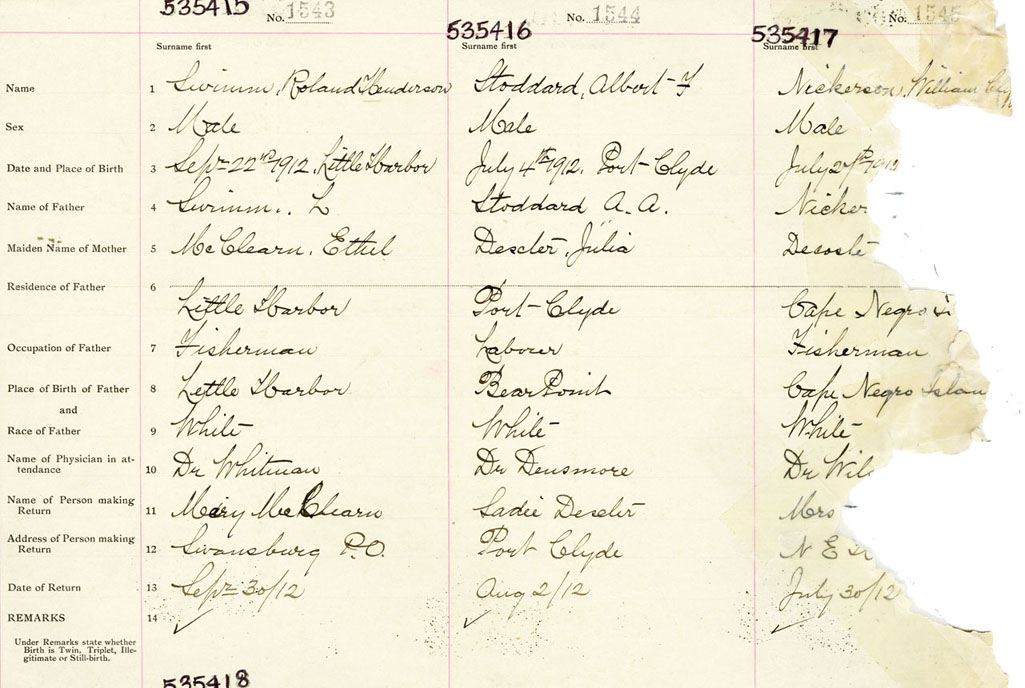 535415 No. 1543
535416 No. 1544
535417 No. 1545
Surname first Surname first Surname first
Name 1 Swimm, Roland Henderson Stoddard, Albert F Nickerson, William
Sex 2 Male Male Male
Date and Place of Birth 3 Sept 22nd 1912, Little Harbor July 4th 1912. Port Clyde July 27th 1912
Name of Father 4 Swimm.. L Stoddard A. A. Nicker
Maiden Name of Mother 5 McClearn, Ethel Descler, Julia Decoste
Residence of Father 6
Little Harbor Port-Clyde Cape Negro Is
Occupation of Father 7 Fisherman Laborer Fisherman
Place of Birth of Father 8 Little Harbor Bear Point Cape Negro Islan
and
Race of Father 9 White White White
Name of Physician in at-
tendance 10 Dr Whitman Dr Densmore Dr Wil
Name of Person making
Return 11 Mary McClearn Sadie Descler Mrs
Address of Person making
Return 12 Swansburg P.O. Port Clyde N E
Date of Return 13 Sept 30/12 Aug 2/12 July 30/12
REMARKS 14
Under Remarks state whether
Birth is Twin, Triplet, Ille-
gitimate or Still-birth.
535418